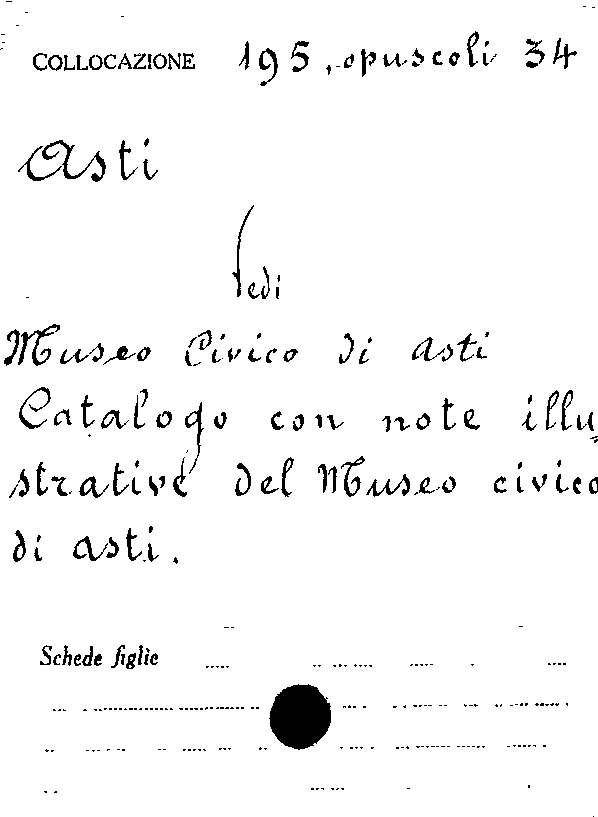 COLLOCAZIONE 195, opuscoli 34
Asti
Vedi
Museo Civico di Asti
Catalogo con note illu-
strative del Museo civico
di Asti.
Schede figlie